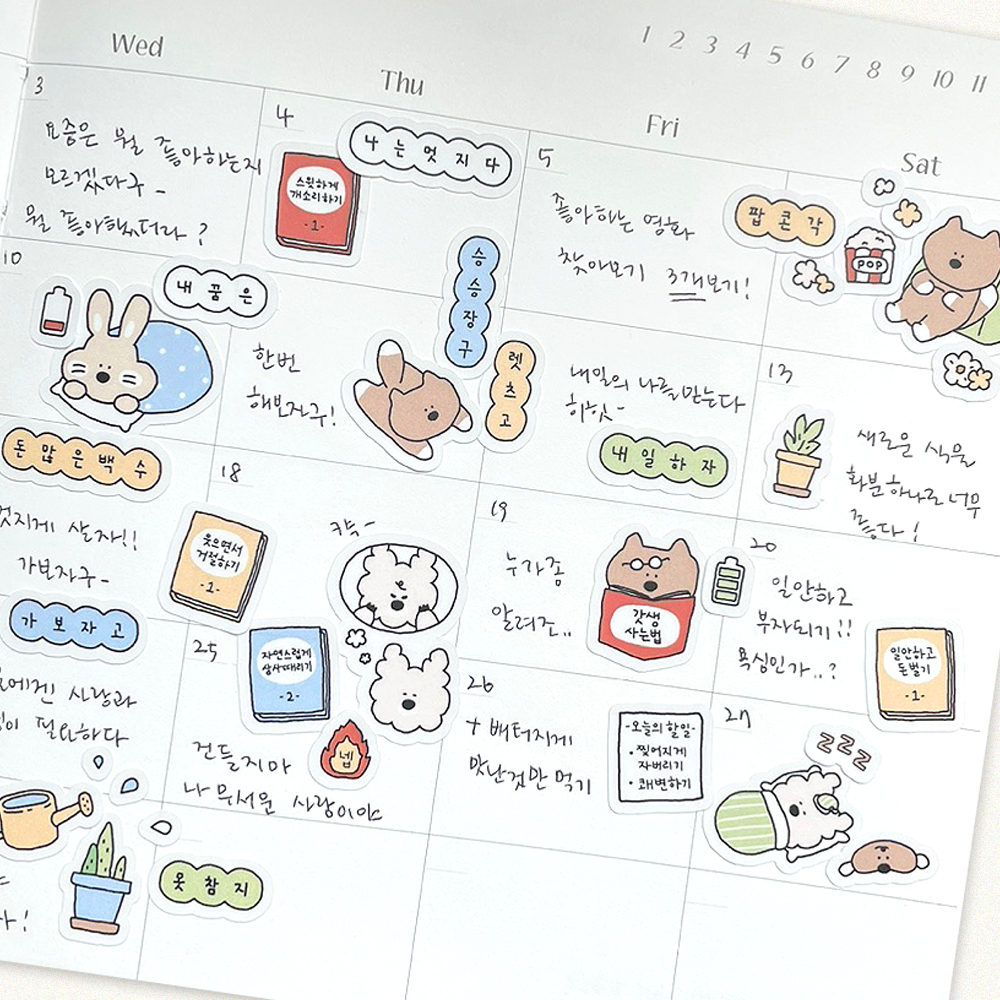 1 2 3 4 5 6 7 8 9 10 11
Wed
Thu
Fri
Sat
3
요즘은 뭘 좋아하는지
모르겠다구-
뭘 좋아했더라?
4
나는멋지다
스윗하게
개소리하기
-1-
5
좋아하는 영화
찾아보기 3개보기!
팝콘각
POP
10
내꿈은
돈많은백수
한번
해보자구!
승승장구
렛츠고
내일의 나를 믿는다
히힛-
내일하자
13
새로운 식물
화분하나로 너무
좋다!
멋지게 살자!!
가보자구-
가보자고
18
웃으면서
거절하기
-1-
19
누가좀
알려조..
갓생
사는법
20
일안하고
부자되기!!
욕심인가..?
일안하고
돈벌기
-1-
에겐 사랑과
이 필요하다
25
자연스럽게
상사때리기
-2-
건들지마
나 무서운 사람이야
넵
26
+ 배터지게
맛난것만 먹기
-오늘의 할일-
• 찢어지게
자버리기
• 쾌변하기
27
ZZZ
!
옷참지